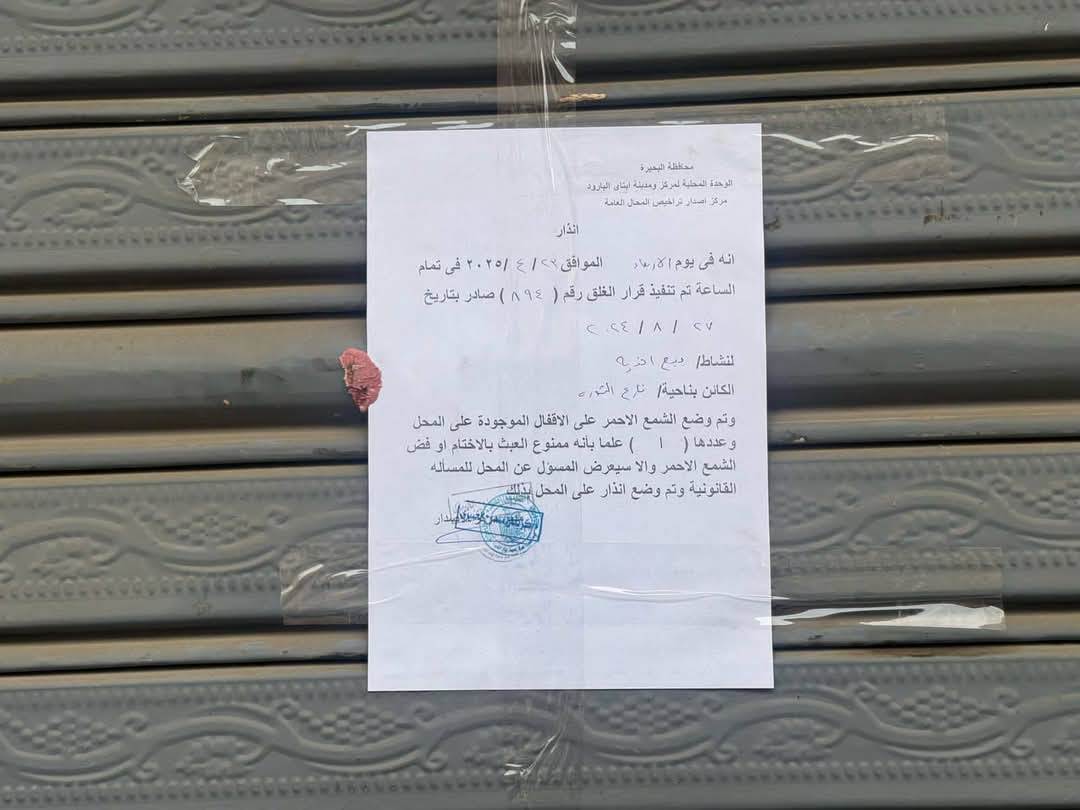 محافظة البحيرة
الوحدة المحلية لمركز ومدينة ايتاى البارود
مركز اصدار تراخيص المحال العامة
انذار
انه فى يوم الاربعاء الموافق ٢٣ / ٤ / ٢٠٢٥ فى تمام
الساعة تم تنفيذ قرار الغلق رقم ( ٨٩٤ ) صادر بتاريخ
٢٧ / ٨ / ٢٠٢٤
لنشاط/ بيع احذيه
الكائن بناحية/ شارع الثوره
وتم وضع الشمع الاحمر على الاقفال الموجودة على المحل
وعددها ( ١ ) علما بأنه ممنوع العبث بالاختام او فض
الشمع الاحمر والا سيعرض المسؤل عن المحل للمسأله
القانونية وتم وضع انذار على المحل بذلك